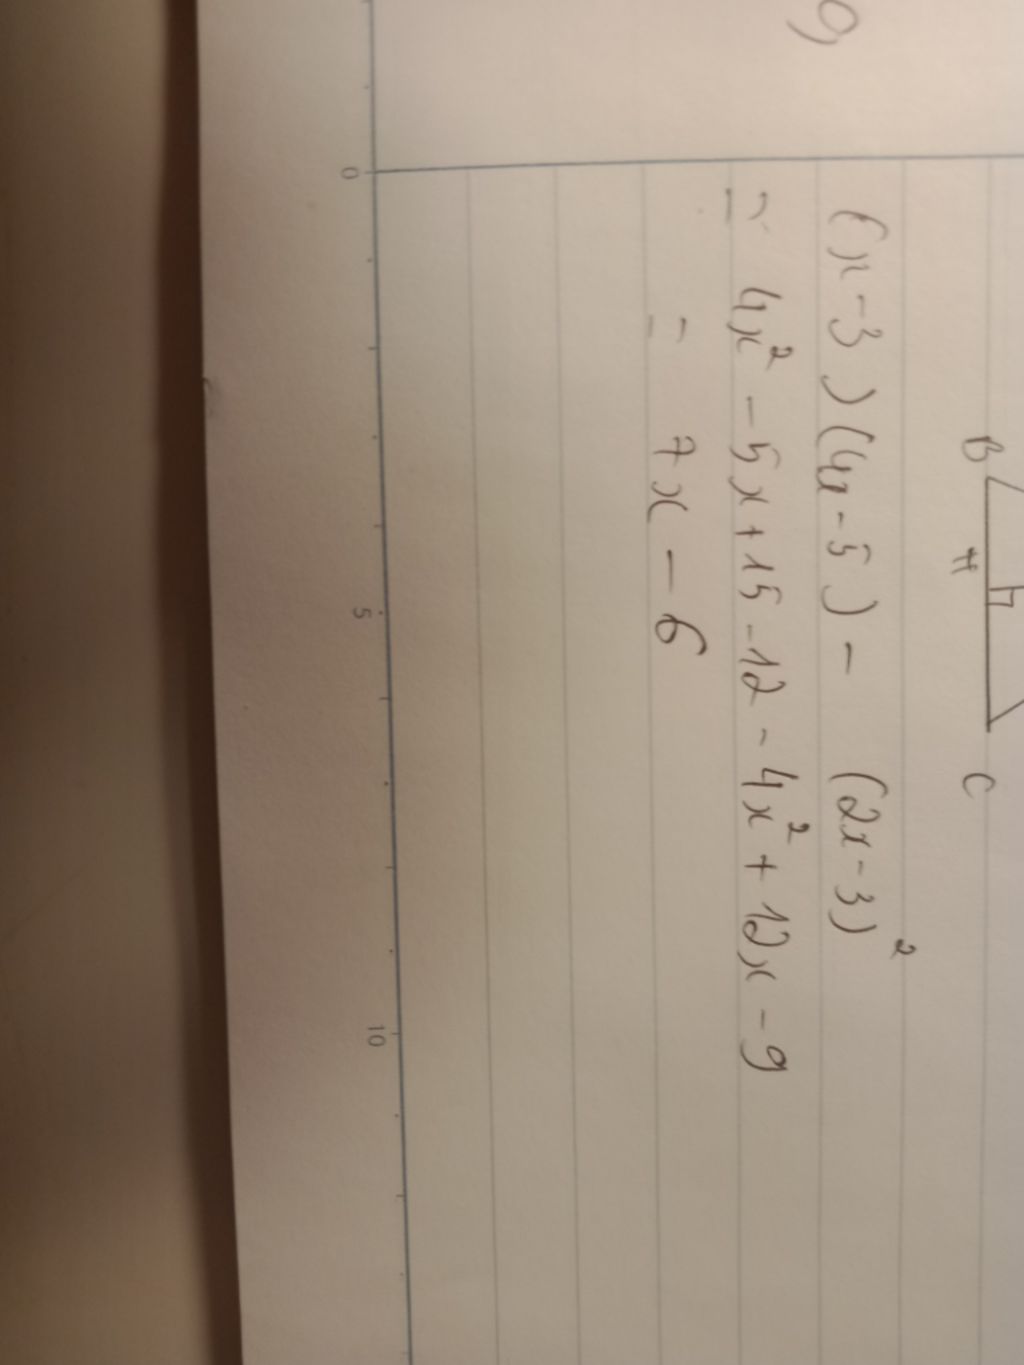 B H C
(x-3)(4x-5) - (2x-3)²
= 4x² - 5x + 15 - 12 - 4x² + 12x - 9
= 7x - 6
0 5 10